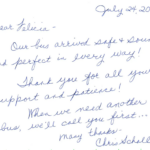 July 24, 20
ear Felicia -
Our bus arrived safe & soun
nd perfect in every way!
Thank you for all your
upport and patience!
When we need another
bus, we'll call you first...
Many thanks -
Chris Scholl